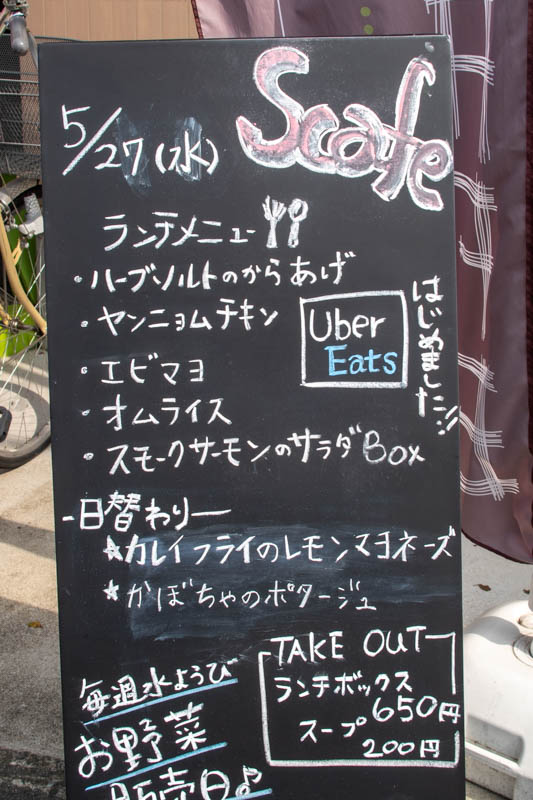 Scafe
5/27(水)
ランチメニュー
・ハーブソルトのからあげ
・ヤンニョムチキン
・エビマヨ
・オムライス
・スモークサーモンのサラダBox
Uber
Eats
はじめました!!
-日替わり-
★カレイフライのレモンマヨネーズ
★かぼちゃのポタージュ
TAKE OUT
ランチボックス
650円
スープ
200円
毎週水ようび
お野菜
販売日♪